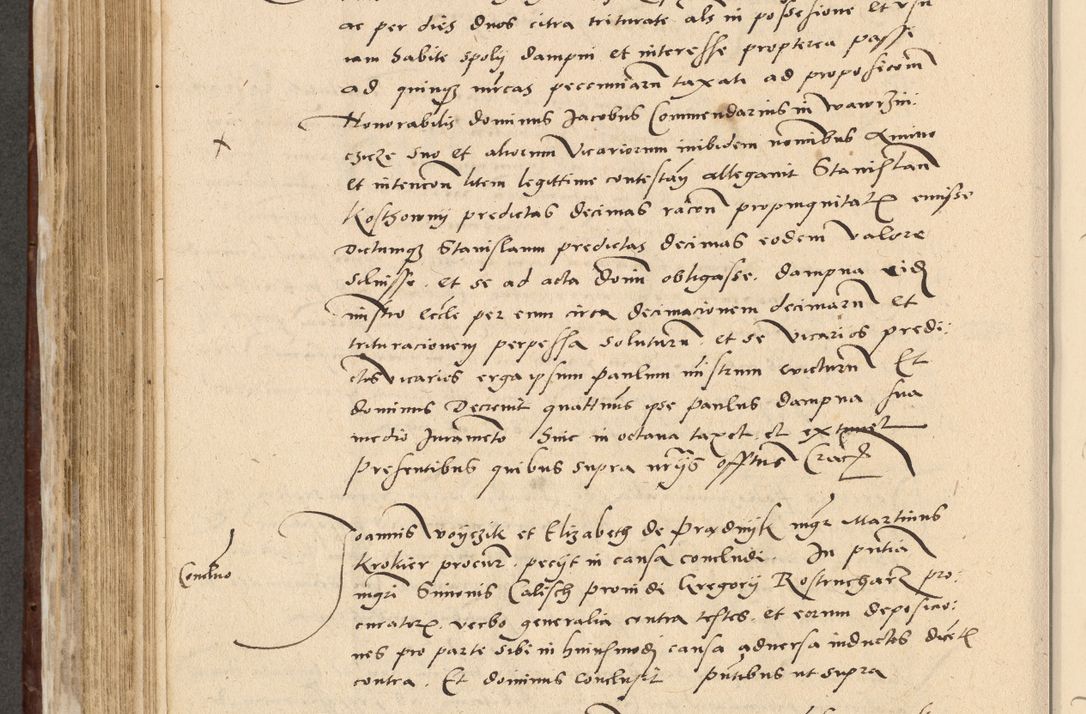 ac per dies duos citra triturate als in possessione et usu
iam habite spolij dampni et interesse propterea passe
ad quinqz mrcas pecuniaru taxati ad proposicom
Honorabilis dominus Jacobus Commendarius in Wawrzin:
czicze suo et aliorum vicariorum inibidem nomibus animo
et intencon litem legittime contestan allegavit Stanislau
Koschowny predictas decimas racon propinquitat emisse
Dictumqz Stanislaum predictas decimas eodem valore
solvisse. et se ad acta domi obligasse. dampna
mstro eccle per eum circa decimacionem decimaru et
trituracionem perpessa soluturu. et se vicarios predi:
ctos vicarios erga ipsum Paulum mistrum evicturu Et
dominus Decrevit quattinus ipse Paulus dampna sua
medio Juramento hinc in octava taxet et
Presentibus quibus supra nrijs offtus Crac
Joannis Woyczik et Elizabeth de Prądnyk mgr Martinus
Krokier procur. peciit in causa concludi. In pntia
Conclusio
mgri Simonis Calisch providi Gregorij Rostruchar pro:
curator. verbo generalia contra testes. et eorum deposicio:
nes pro parte sibi in huiusmodi causa adversa inductos dicet
contra. Et dominus conclusit Pntibus ut supra